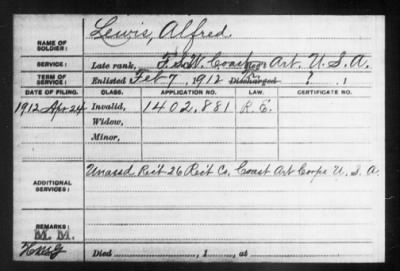 Lewis, Alfred
NAME OF SOLDIER:
SERVICE: Late rank, Coast Art. U. S. A.
TERM OF SERVICE: Enlisted Feb 7, 1912 Discharged ? , 1
DATE OF FILING. CLASS. APPLICATION NO. LAW. CERTIFICATE NO.
1912 Apr 24 Invalid, 1402.881 R.E.
Widow,
Minor,
ADDITIONAL SERVICES: Unassd Rec't 26 Rec't Co, Coast Art Corps U. S. A.
REMARKS:
M. M.
Died , 1 , at